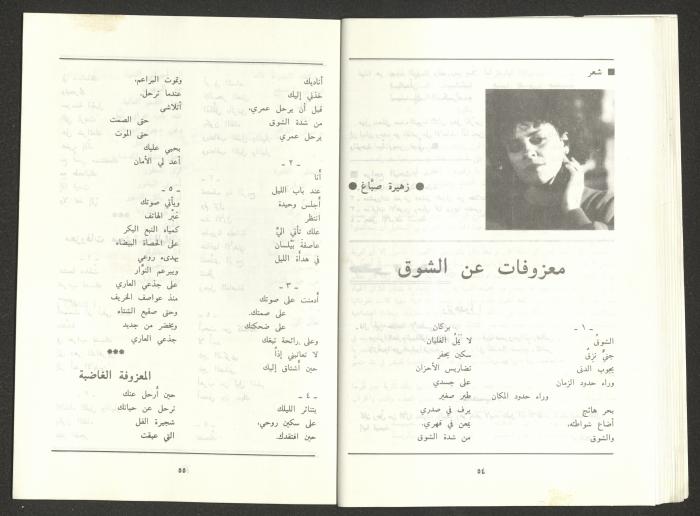 شعر
زهيرة صبّاغ
معزوفات عن الشوق
ـ ١ ـ
الشوقُ
جنيٌّ نزقٌ
يجوب الدنى
وراء حدود الزمان
وراء حدود المكان
بحر هائج
أضاع شواطئه.
والشوق
بركان
لا يَمَلُّ الغليان
سكين يحفر
تضاريس الأحزان
على جسدي
طير صغير
يرف في صدري
يمعن في قهري.
من شدة الشوق
٥٤
أناديك
خذني إليك
قبل أن يرحل عمري.
من شدة الشوق
يرحل عمري
ـ ٢ ـ
أنا
عند باب الليل
أجلس وحيدة
انتظر
علك تأتي اليَّ
عاصفةَ بَيْلسان
في هدأة الليل
ـ ٣ ـ
أدمنت على صوتك
على صمتك.
على ضحكتك
وعلى رائحة تبغك
لا تعاتبني إذاً
حين أشتاق إليك
ـ ٤ ـ
يتناثر الليلك
على سكين روحي،
حين افتقدك.
وتموت البراعم،
عندما ترحل.
أتلاشى
حتى الصمت
حتى الموت
بحبي عليك
أعد لي الأمان
ـ ٥ ـ
ويأتي صوتك
عَبْر الهاتف
كمياه النبع البكر
على الحصاة البيضاء
يهدىء روعي
ويبرعم النوّار
على جذعي العاري
منذ عواصف الخريف
وحتى صقيع الشتاء
ويخضر من جديد
جذعي العاري
***
المعزوفة الغاضبة
حين أرحل عنك
ترحل عن حياتك
شجيرة الفل
التي عبقت
٥٥